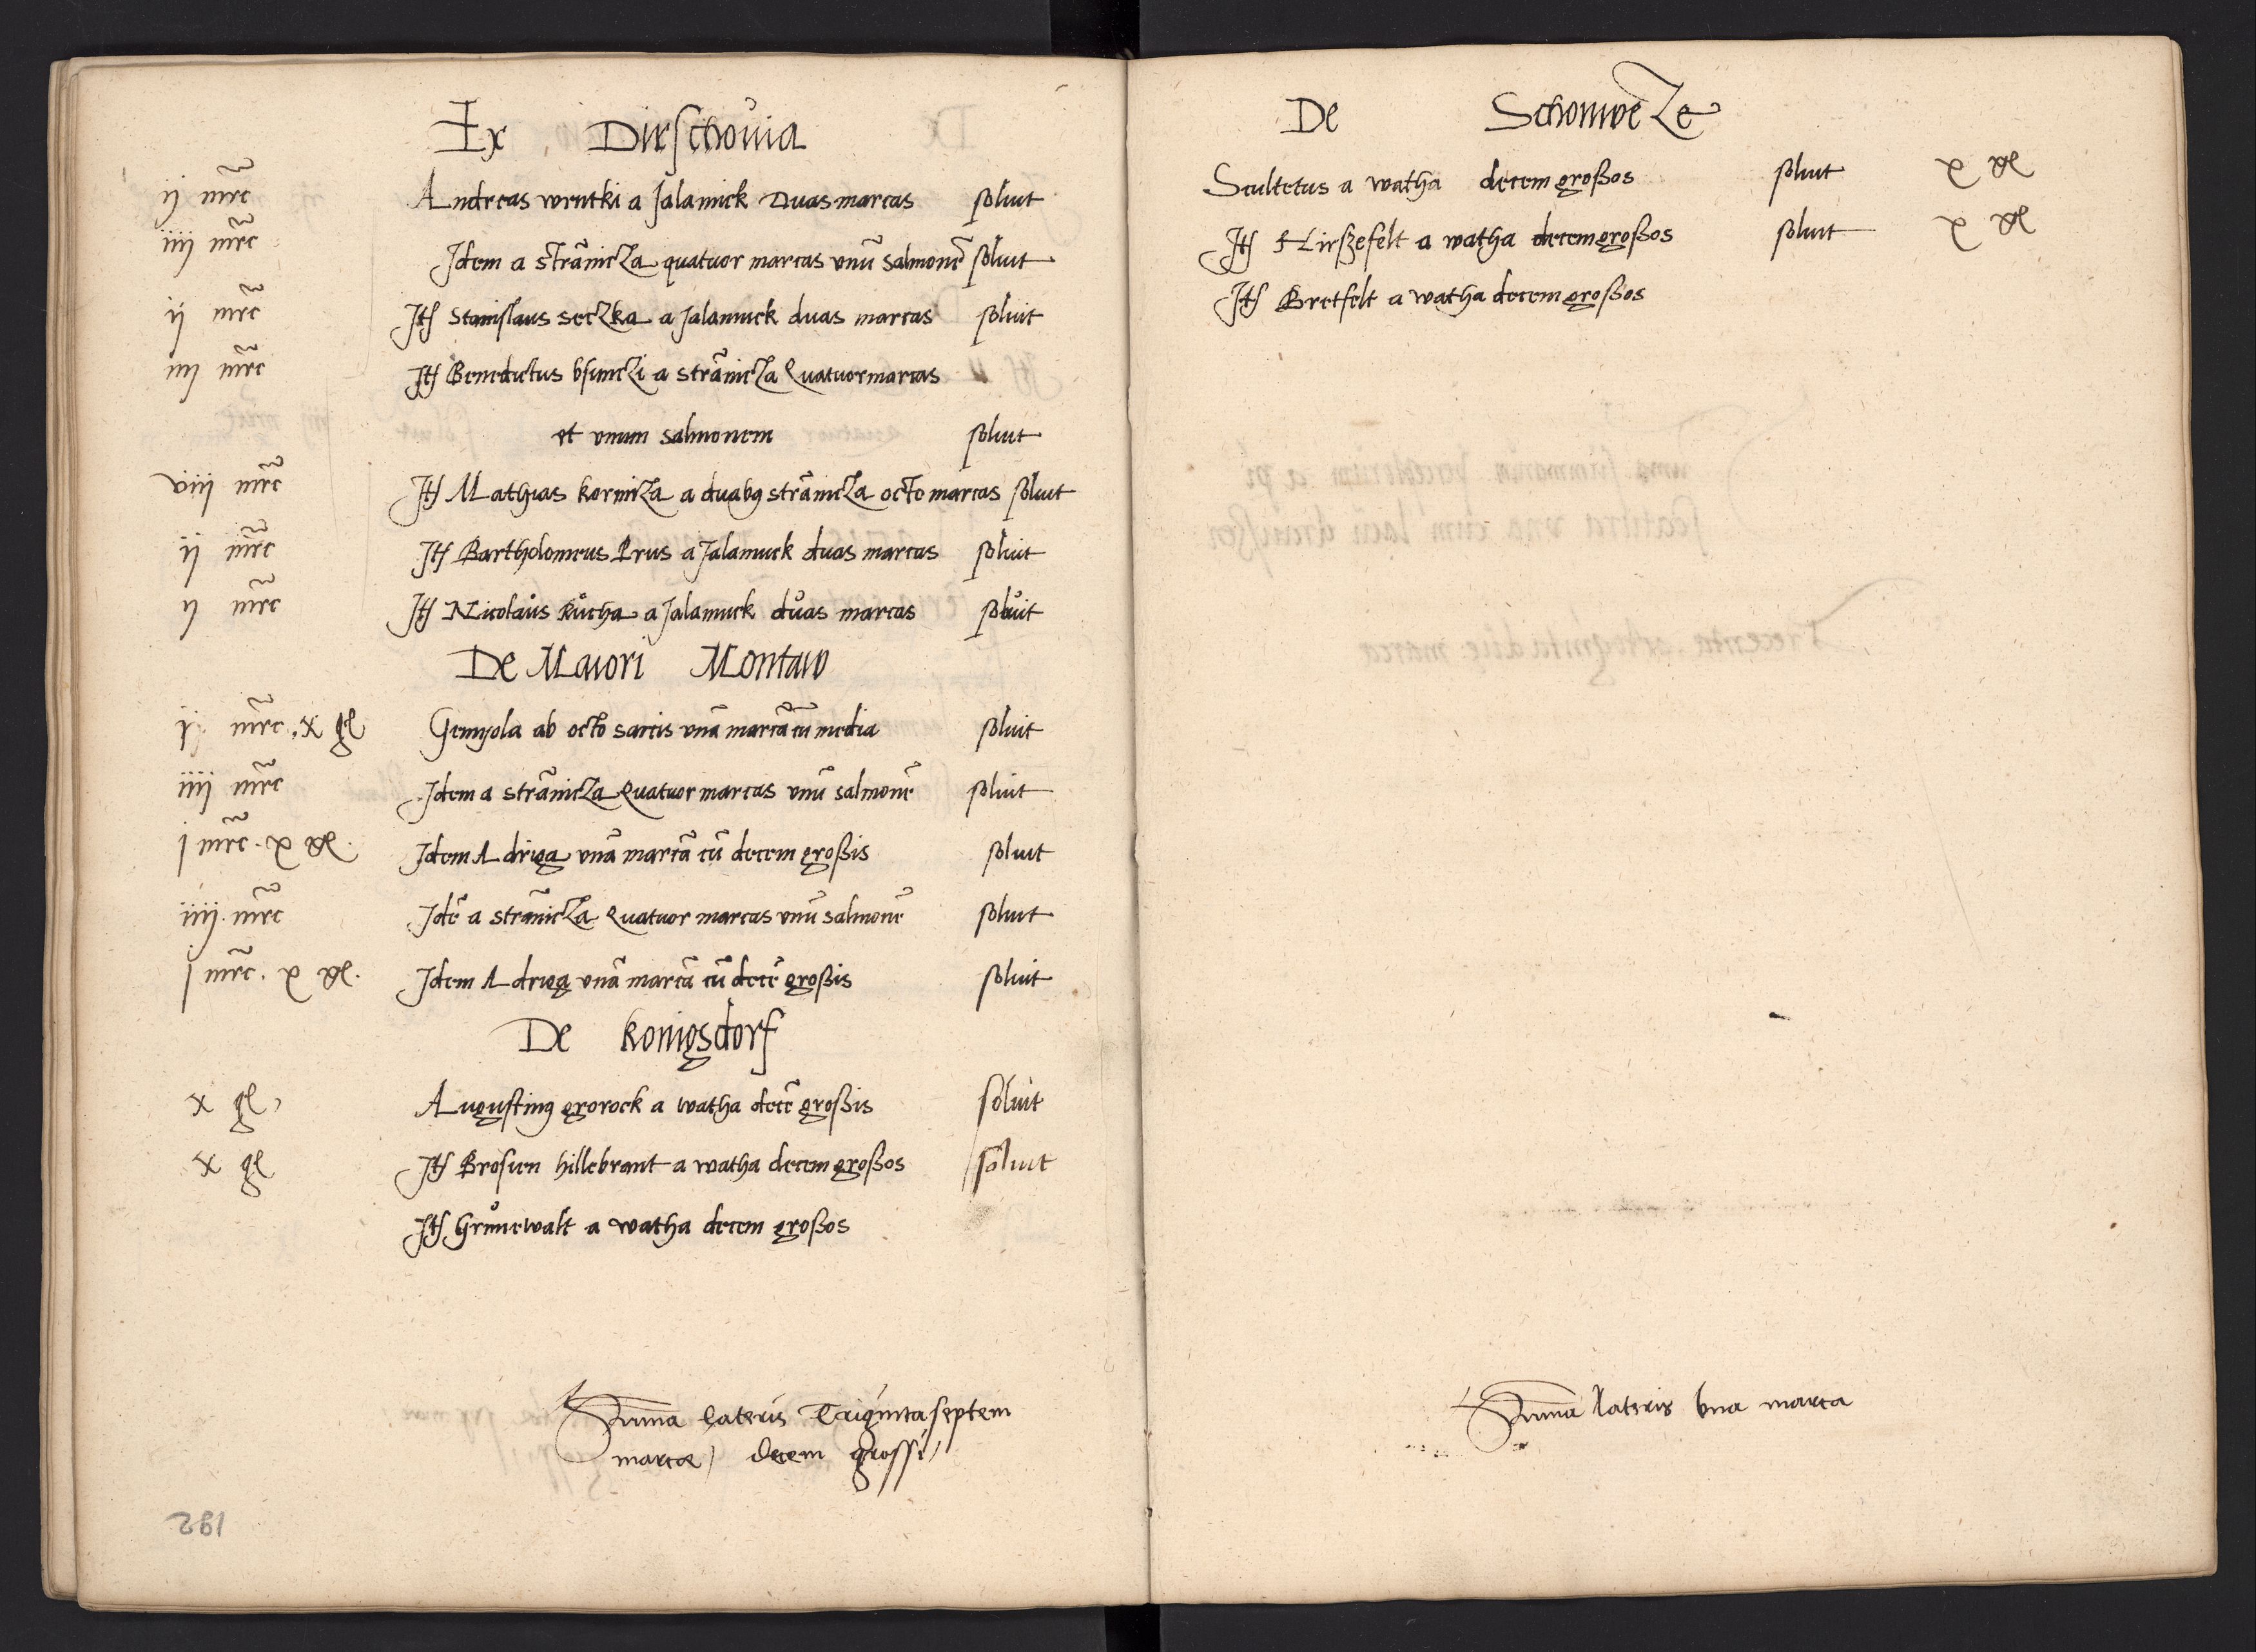 Ex Dirschouia
ij mrc Andreas wrutki a Jalamick Duas marcas soluit
iiij mrc Idem a strānicza quatuor marcas vnū salmonē soluit
ij mrc Itē Stanislaus seczka a Jalamuck duas marcas soluit
iiij mrc Itē Benedictus bsunczi a strānicza Quatuor marcas
et vnum salmonem soluit
viij mrc Itē Mathias kornicza a duabq strānicza octo marcas soluit
ij mrc Itē Bartholomeus Prus a Jalamuck duas marcas soluit
ij mrc Itē Nicolaus Rucha a Jalamuck duas marcas soluit
De Maiori Montaw
j mrc . x gl Gemyola ab octo sartis vnā marcā cū media soluit
iiij mrc Idem a strānicza Quatuor marcas vnū salmonē soluit
j mrc . x gl . Idem A driga vnā marcā cū decem großis soluit
iiij . mrc Idē a strānicza Quatuor marcas vnū salmonē soluit
j mrc . x gl . Idem A drwga vnā marcā cū decē großis soluit
De konigsdorf
x gl Augustinq grorock a watha decē großis soluit
x gl Itē Brosien hillebrant a watha decem großos soluit
Itē Grunewalt a watha decem großos
Summa lateris Triginta septem
marcae / decem grossi /
192
De Schonweze
Scultetus a watha decem großos soluit x gl
Itē Hirszefelt a watha decem großos soluit x gl
Itē Bretfelt a watha decem großos
Summa lateris vna marca